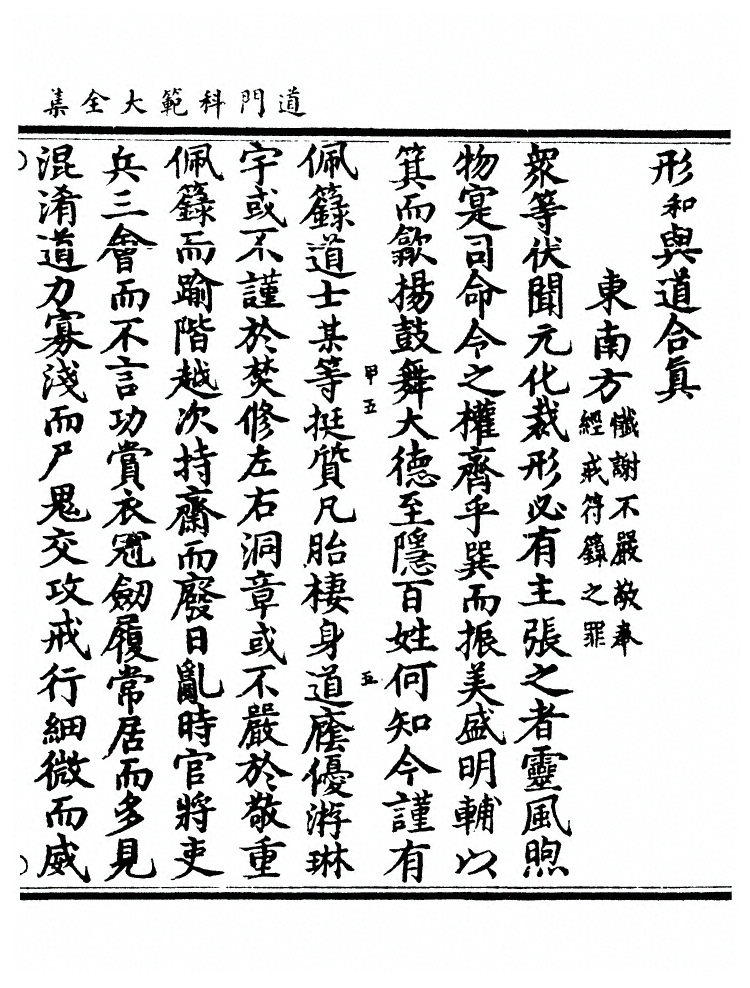 道門科範大全集
形和與道合真
東南方
懺謝不嚴敬奉
經戒符籙之罪
衆等伏聞元化裁形必有主張之者靈風煦
物寔司命令之權齊乎巽而振美盛明輔以
箕而歙揚鼓舞大德至隱百姓何知今謹有
甲五
五
佩籙道士某等挺質凡胎棲身道廕優游琳
宇或不謹於焚修左右洞章或不嚴於敬重
佩籙而踰階越次持齋而廢日亂時官將吏
兵三會而不言功賞衣冠劒履常居而多見
混淆道力寡淺而尸鬼交攻戒行細微而威